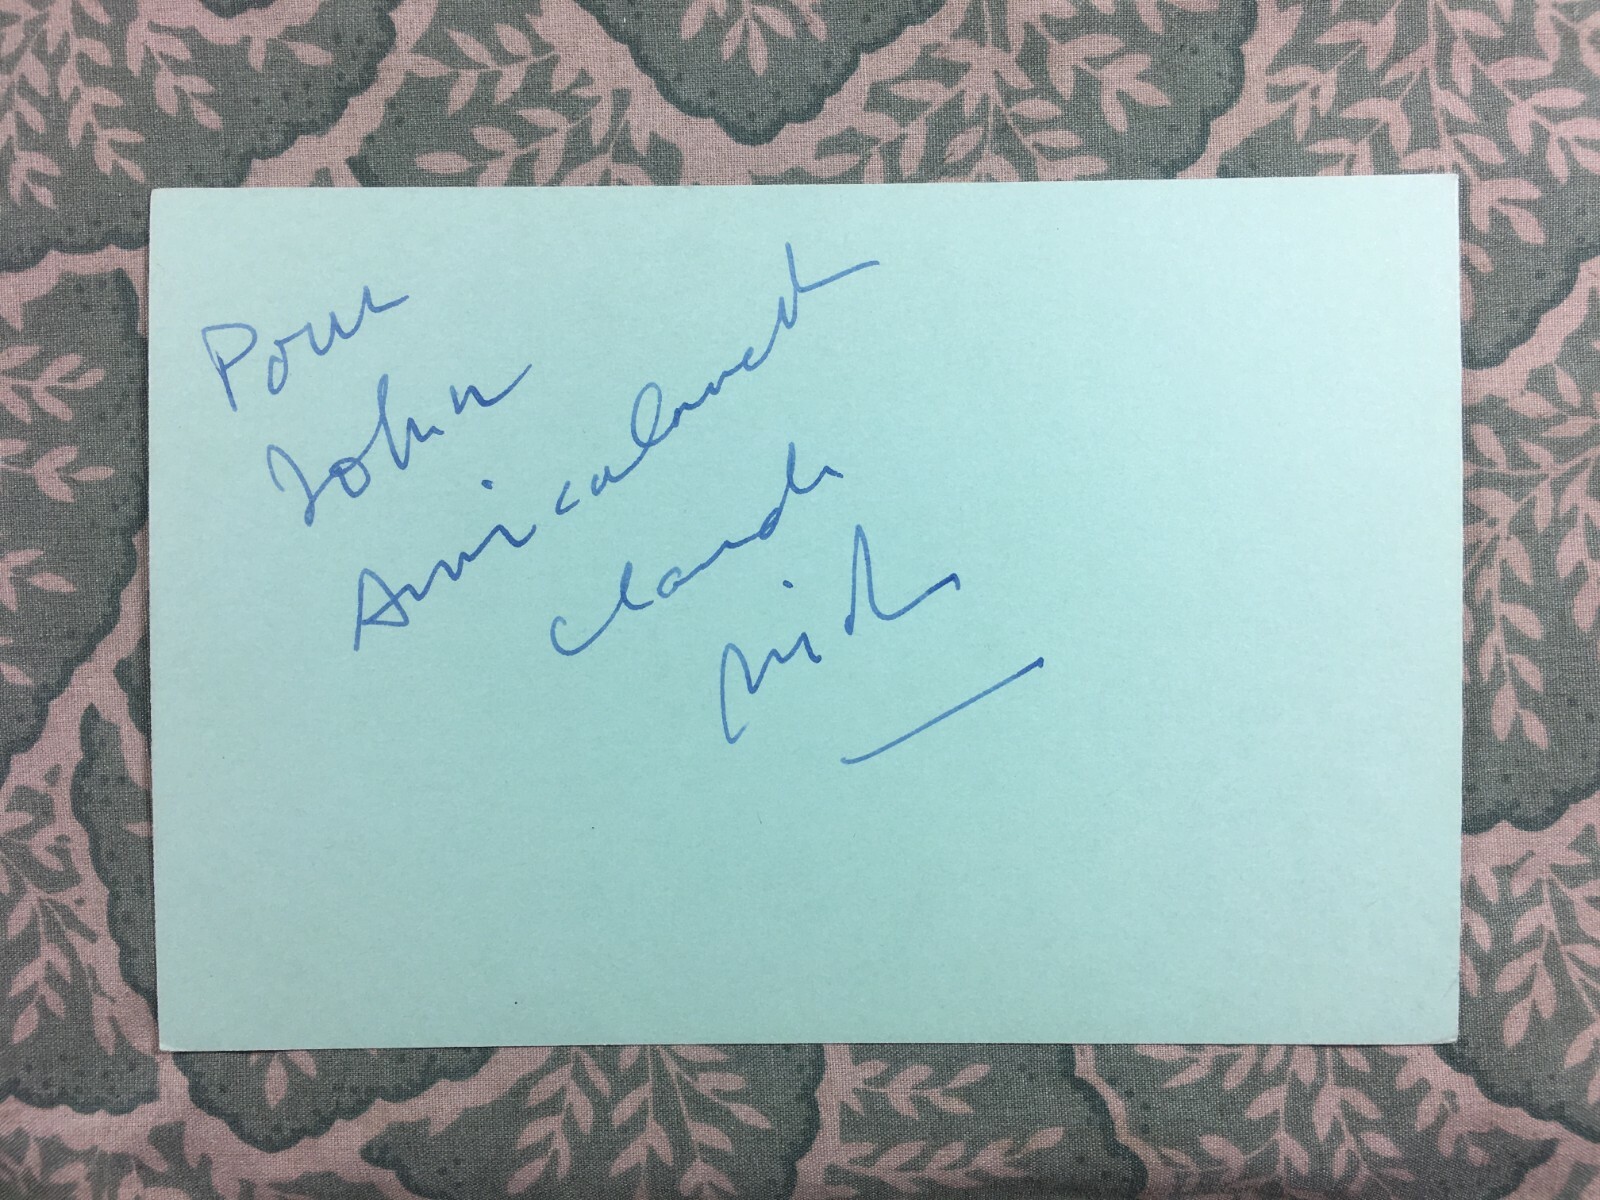 Pour
John
Amicalement
Claude